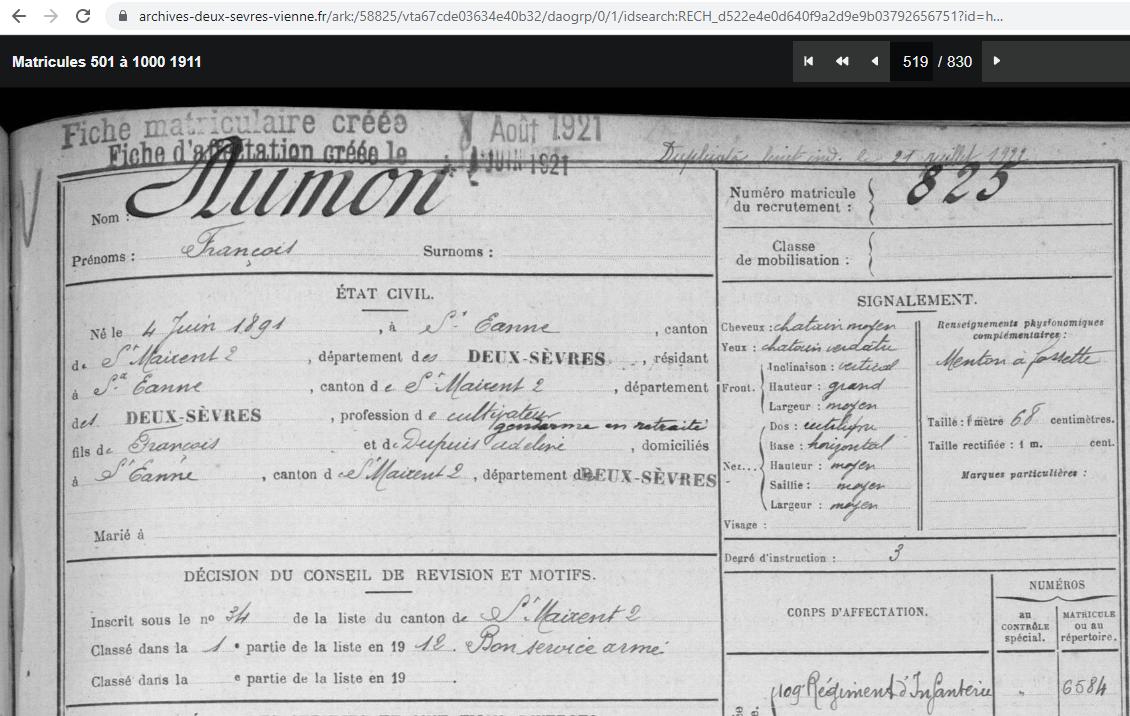 archives-deux-sevres-vienne.fr/ark:/58825/vta67cde03634e40b32/daogrp/0/1/idsearch:RECH_d522e4e0d640f9a2d9e9b03792656751?id=h...
Matricules 501 à 1000 1911
519 / 830
Fiche matriculaire créée Août 1921
Fiche d'affectation créée le JUIN 1921
Duplicata le 21 juillet
Nom : Aumon
Prénoms : François Surnoms :
Numéro matricule du recrutement : 825
Classe de mobilisation :
ÉTAT CIVIL.
Né le 4 Juin 1891, à St Eanne, canton
de St Maixent 2, département des DEUX-SÈVRES, résidant
à St Eanne, canton de St Maixent 2, département
des DEUX-SÈVRES, profession de cultivateur
gendarme en retraite
fils de François et de Dupuis adeline, domiciliés
à St Eanne, canton de St Maixent 2, département des DEUX-SÈVRES
Marié à
SIGNALEMENT.
Cheveux : chatain moyen
Yeux : chatain verdatre
Front. Inclinaison : vertical
Hauteur : grand
Largeur : moyen
Nez... Dos : rectiligne
Base : horizontal
Hauteur : moyen
Saillie : moyen
Largeur : moyen
Visage :
Renseignements physionomiques complémentaires :
Menton à fossette
Taille : 1 mètre 68 centimètres.
Taille rectifiée : 1 m. cent.
Marques particulières :
Degré d'instruction : 3
DÉCISION DU CONSEIL DE REVISION ET MOTIFS.
Inscrit sous le no 34 de la liste du canton de St Maixent 2
Classé dans la 1e partie de la liste en 1912. Bon service armé
Classé dans la e partie de la liste en 19 .
CORPS D'AFFECTATION.
NUMÉROS
au CONTRÔLE spécial.
MATRICULE ou au répertoire.
109e Régiment d'Infanterie " 6584